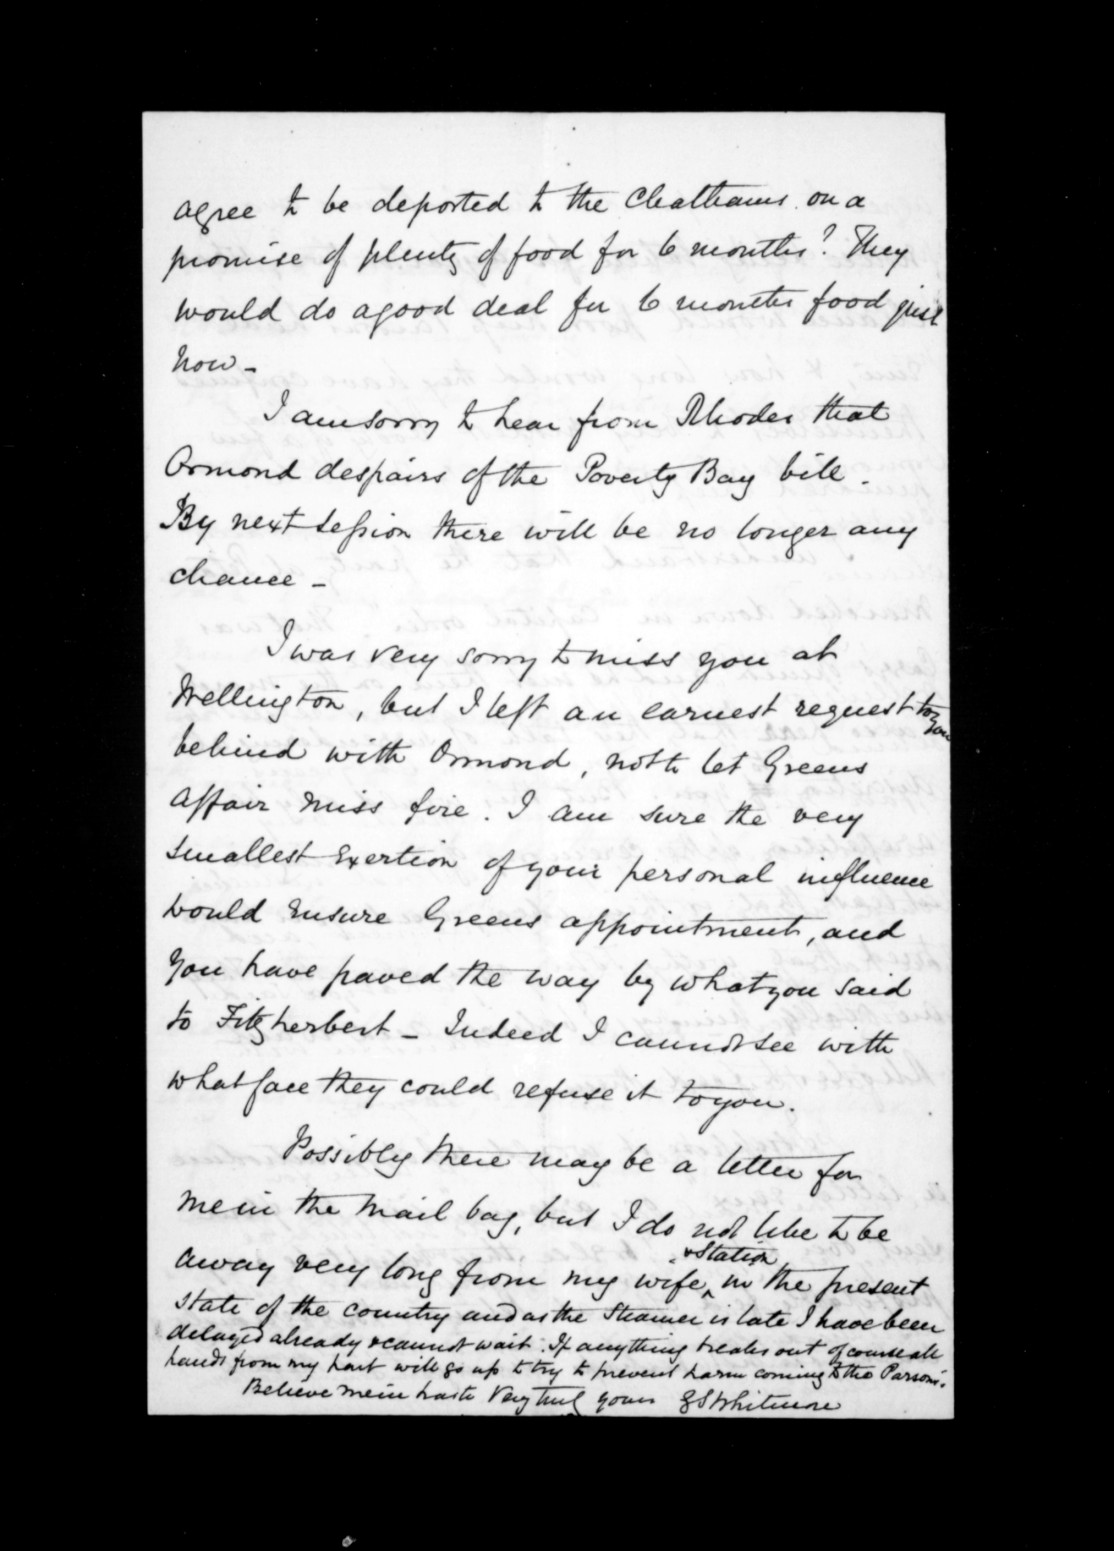 agree to be deported to the Chathams on a
promise of plenty of food for 6 months? They
would do a good deal for 6 months food just
now -
I am sorry to hear from Rhodes that
Ormond despairs of the Poverty Bay bill.
By next Session there will be no longer any
chance -
I was very sorry to miss you at
Wellington, but I left an earnest request to you
behind with Ormond, not to let Greens
affair miss fire. I am sure the very
smallest exertion of your personal influence
would ensure Greens appointment, and
you have paved the way by what you said
to Fitzherbert - Indeed I cannot see with
what face they could refuse it to you.
Possibly there may be a letter for
me in the mail bag, but I do not like to be
& Station
away very long from my wife ^ in the present
state of the country and as the Steamer is late I have been
delayed already & cannot wait. If anything breaks out of course all
hands from my hart will go up to try to prevent harm coming to the Parsons.
Believe me in haste Very truly yours G S Whitmore